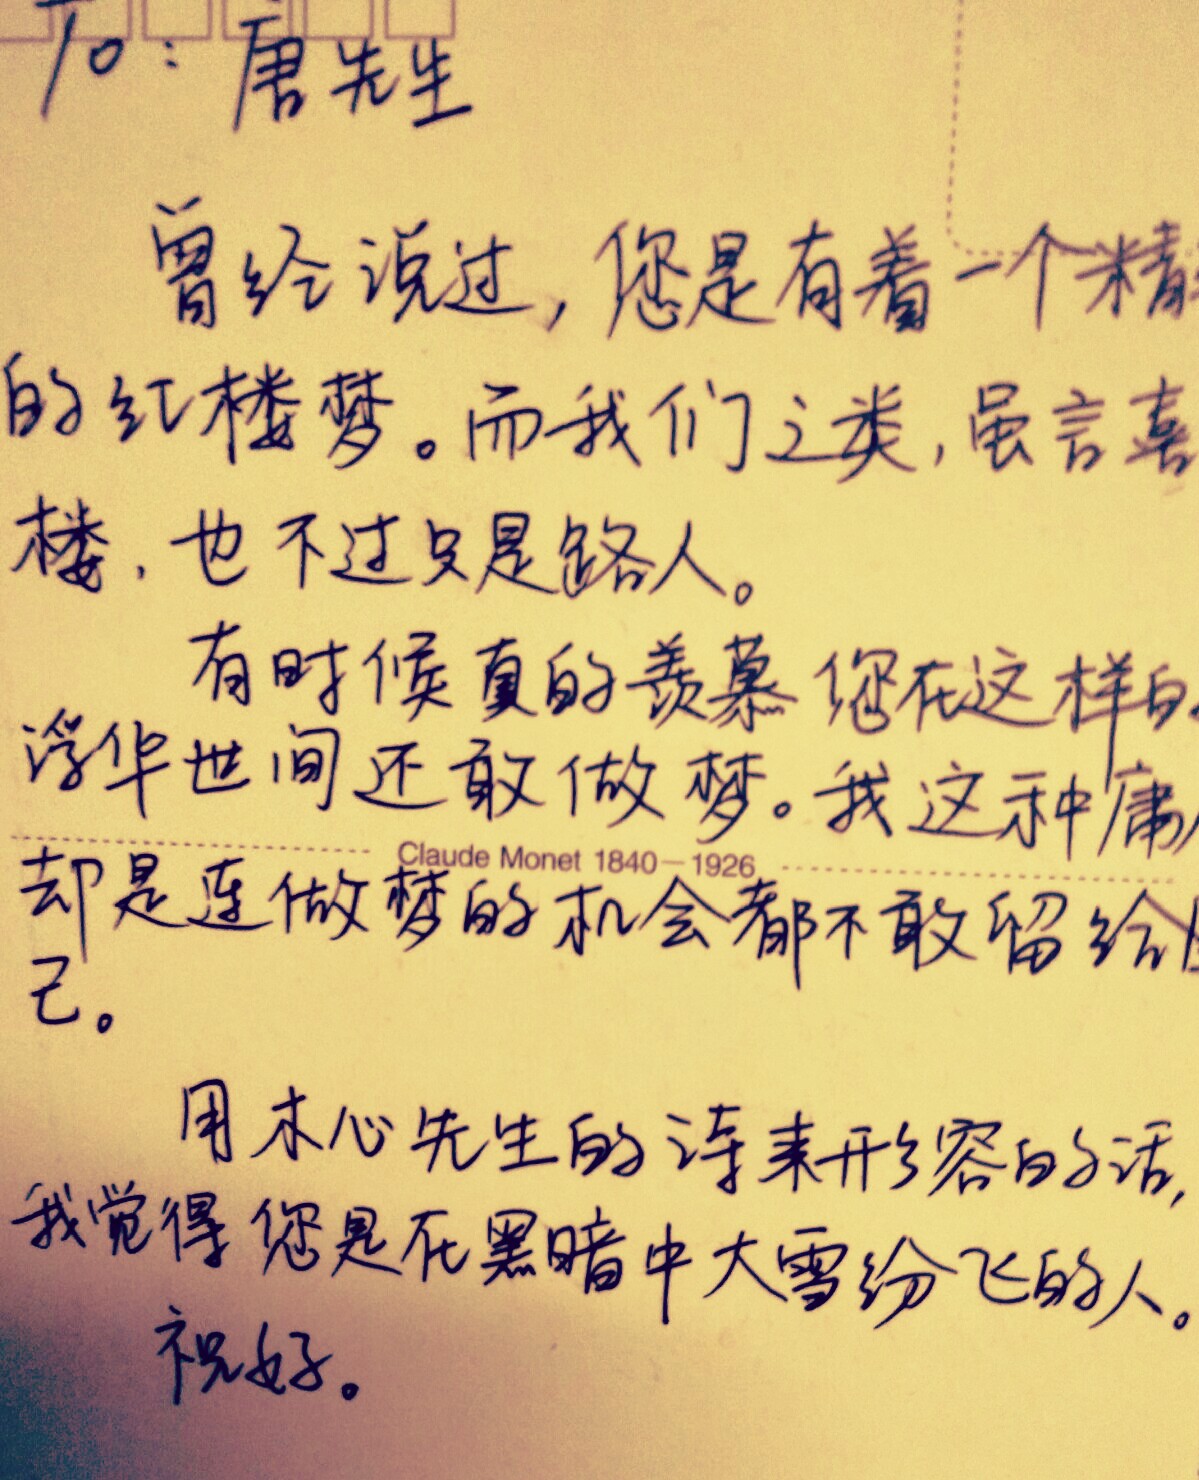 To: 唐先生
曾经说过，您是有着一个精
的红楼梦。而我们之类，虽言喜
楼，也不过只是路人。
有时候真的羡慕您在这样的
浮华世间还敢做梦。我这种庸人
Claude Monet 1840—1926
却是连做梦的机会都不敢留给自
己。
用木心先生的诗来形容的话，
我觉得您是在黑暗中大雪纷飞的人。
祝好。